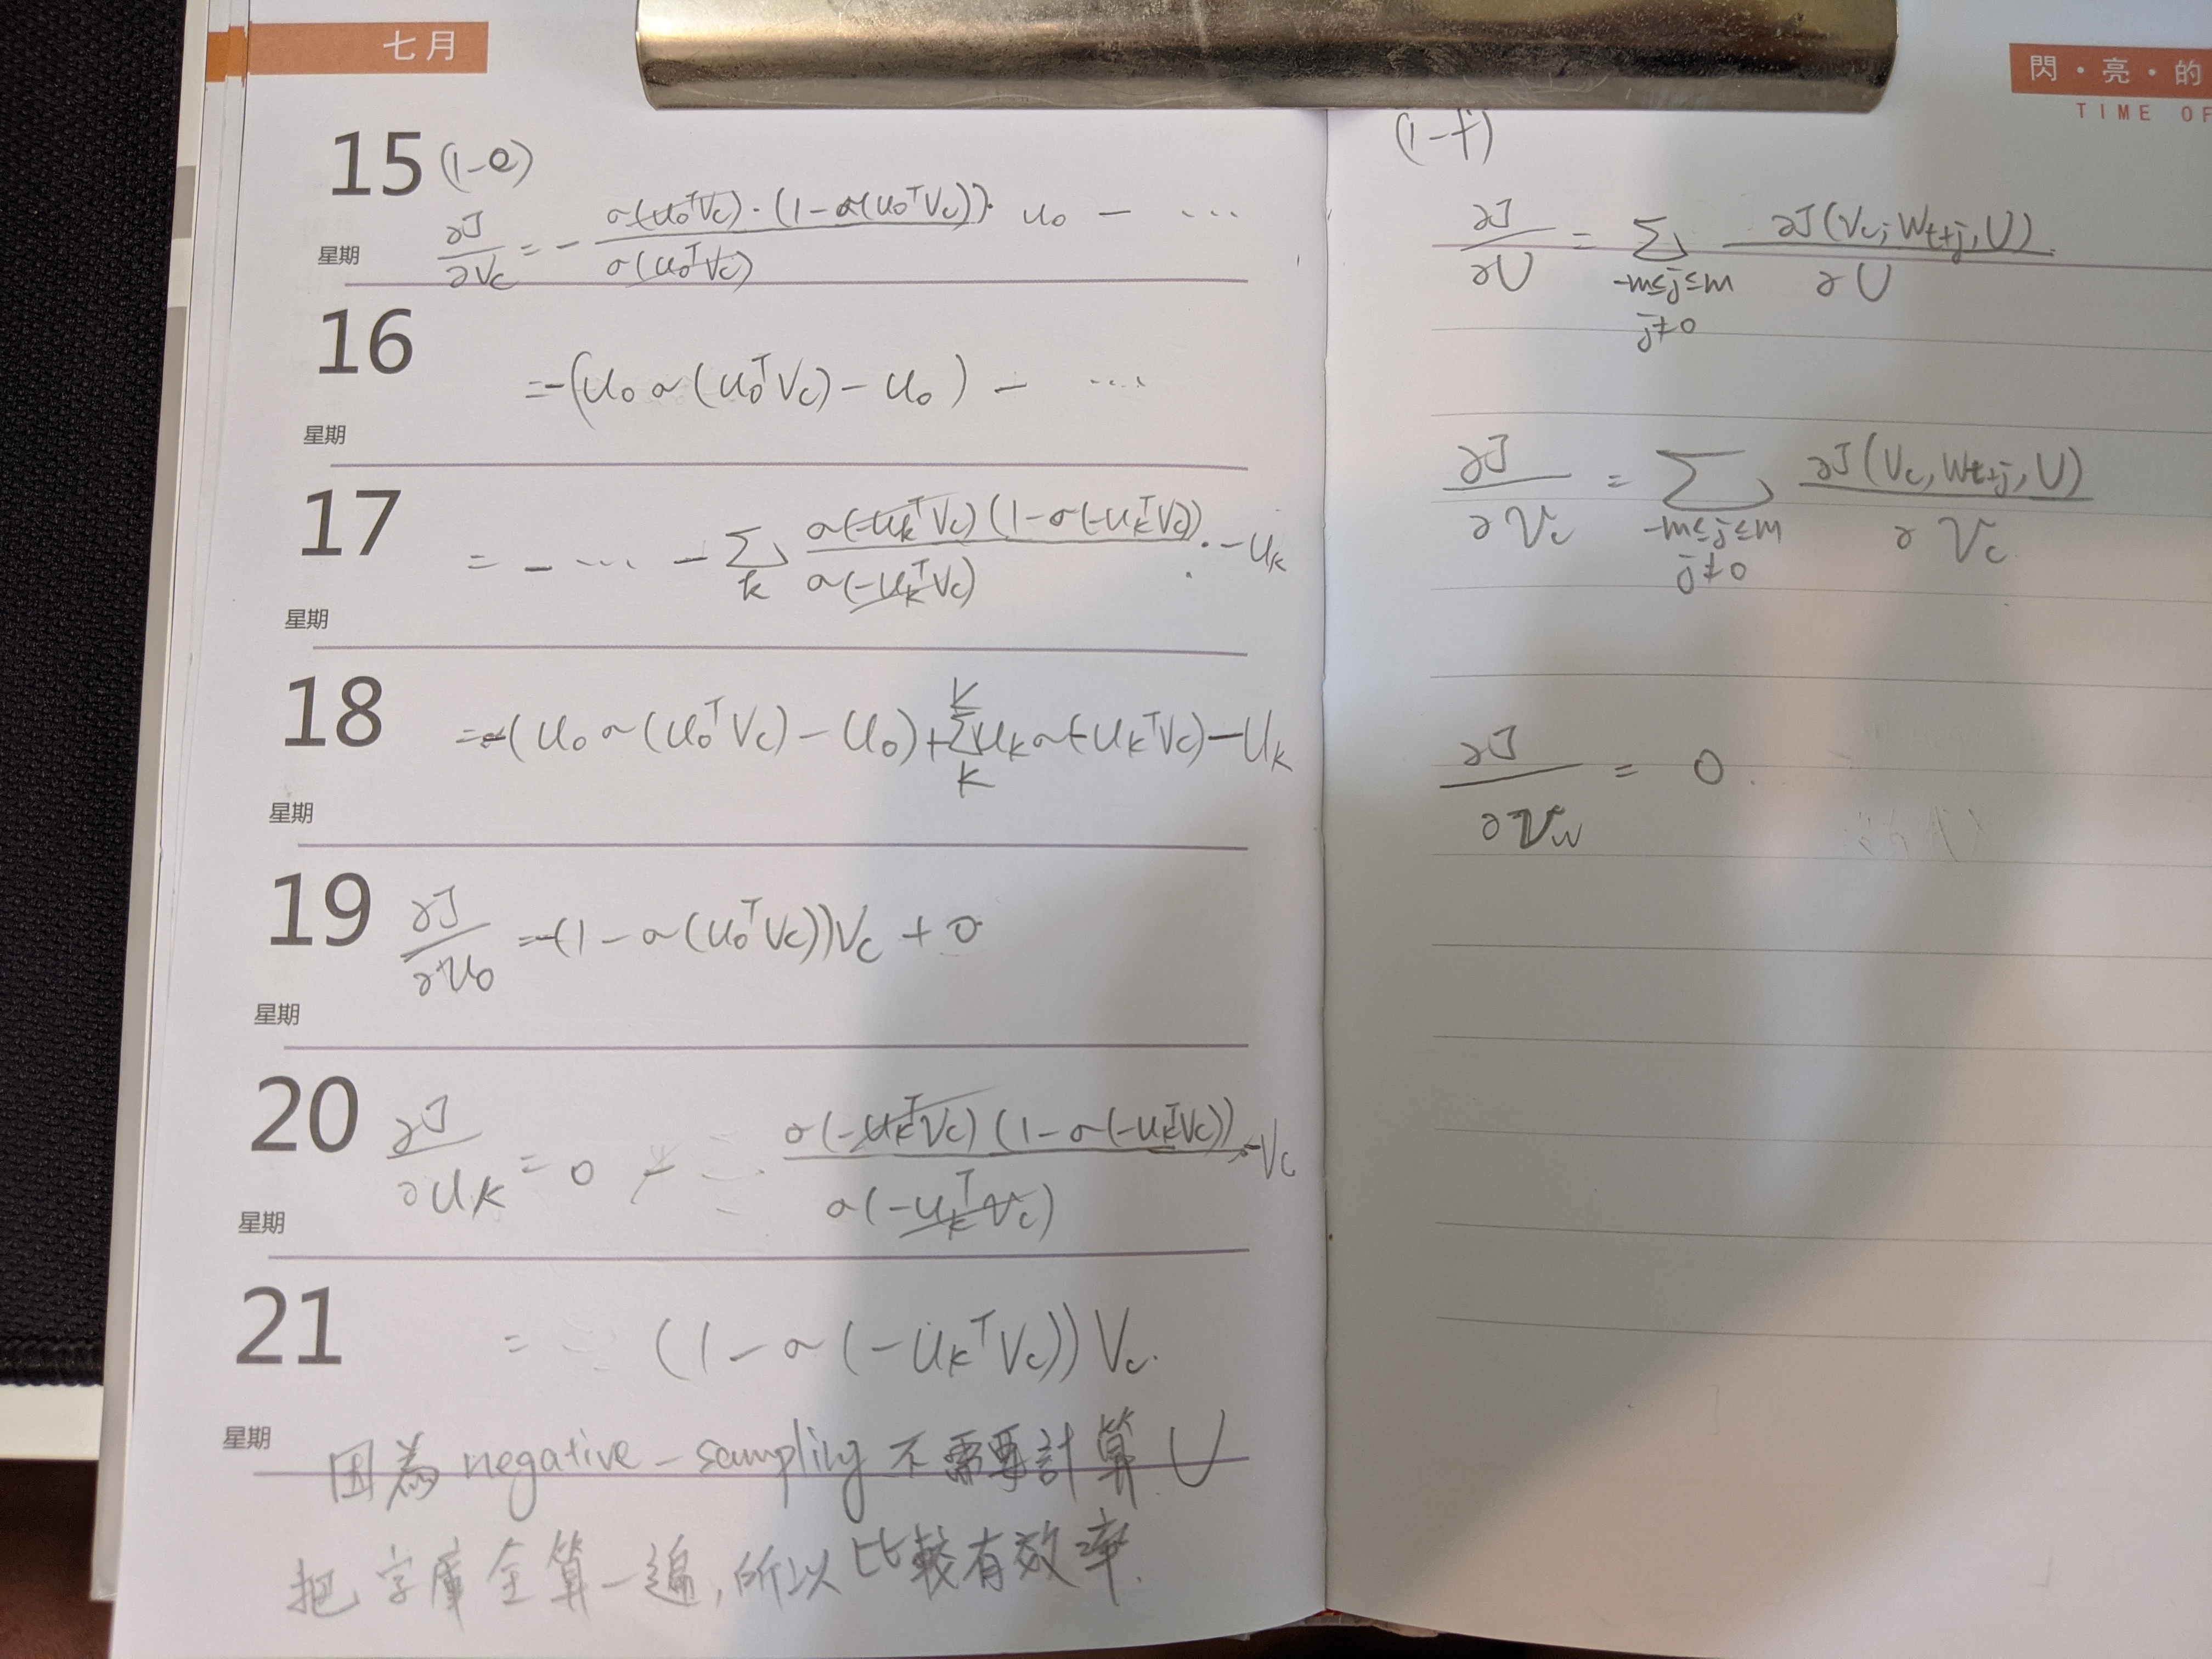 七月
15 (1-e)
星期 ∂J/∂Vc = - σ(u₀ᵀVc)·(1-σ(u₀ᵀVc))/σ(u₀ᵀVc) · u₀ - ...
16
= -(u₀σ(u₀ᵀVc) - u₀) - ....
星期
17
= - ... - Σ_k σ(-u_kᵀVc)(1-σ(-u_kᵀVc))/σ(-u_kᵀVc) · -u_k
星期
18
= -(u₀σ(u₀ᵀVc) - u₀) + Σ_k^K u_kσ(-u_kᵀVc) - u_k
星期
19 ∂J/∂u₀ = -(1-σ(u₀ᵀVc))Vc + 0
星期
20 ∂J/∂u_k = 0 - σ(-u_kᵀVc)(1-σ(-u_kᵀVc))/σ(-u_kᵀVc) · -Vc
星期
21
= (1-σ(-u_kᵀVc))Vc.
星期
因為 negative-sampling 不需要計算 U
把字庫全算一遍,所以比較有效率.
閃·亮·的
TIME OF
(1-f)
∂J/∂U = Σ_{-m≤j≤m, j≠0} ∂J(Vc, W_{t+j}, U)/∂U
∂J/∂Vc = Σ_{-m≤j≤m, j≠0} ∂J(Vc, W_{t+j}, U)/∂Vc
∂J/∂Vw = 0